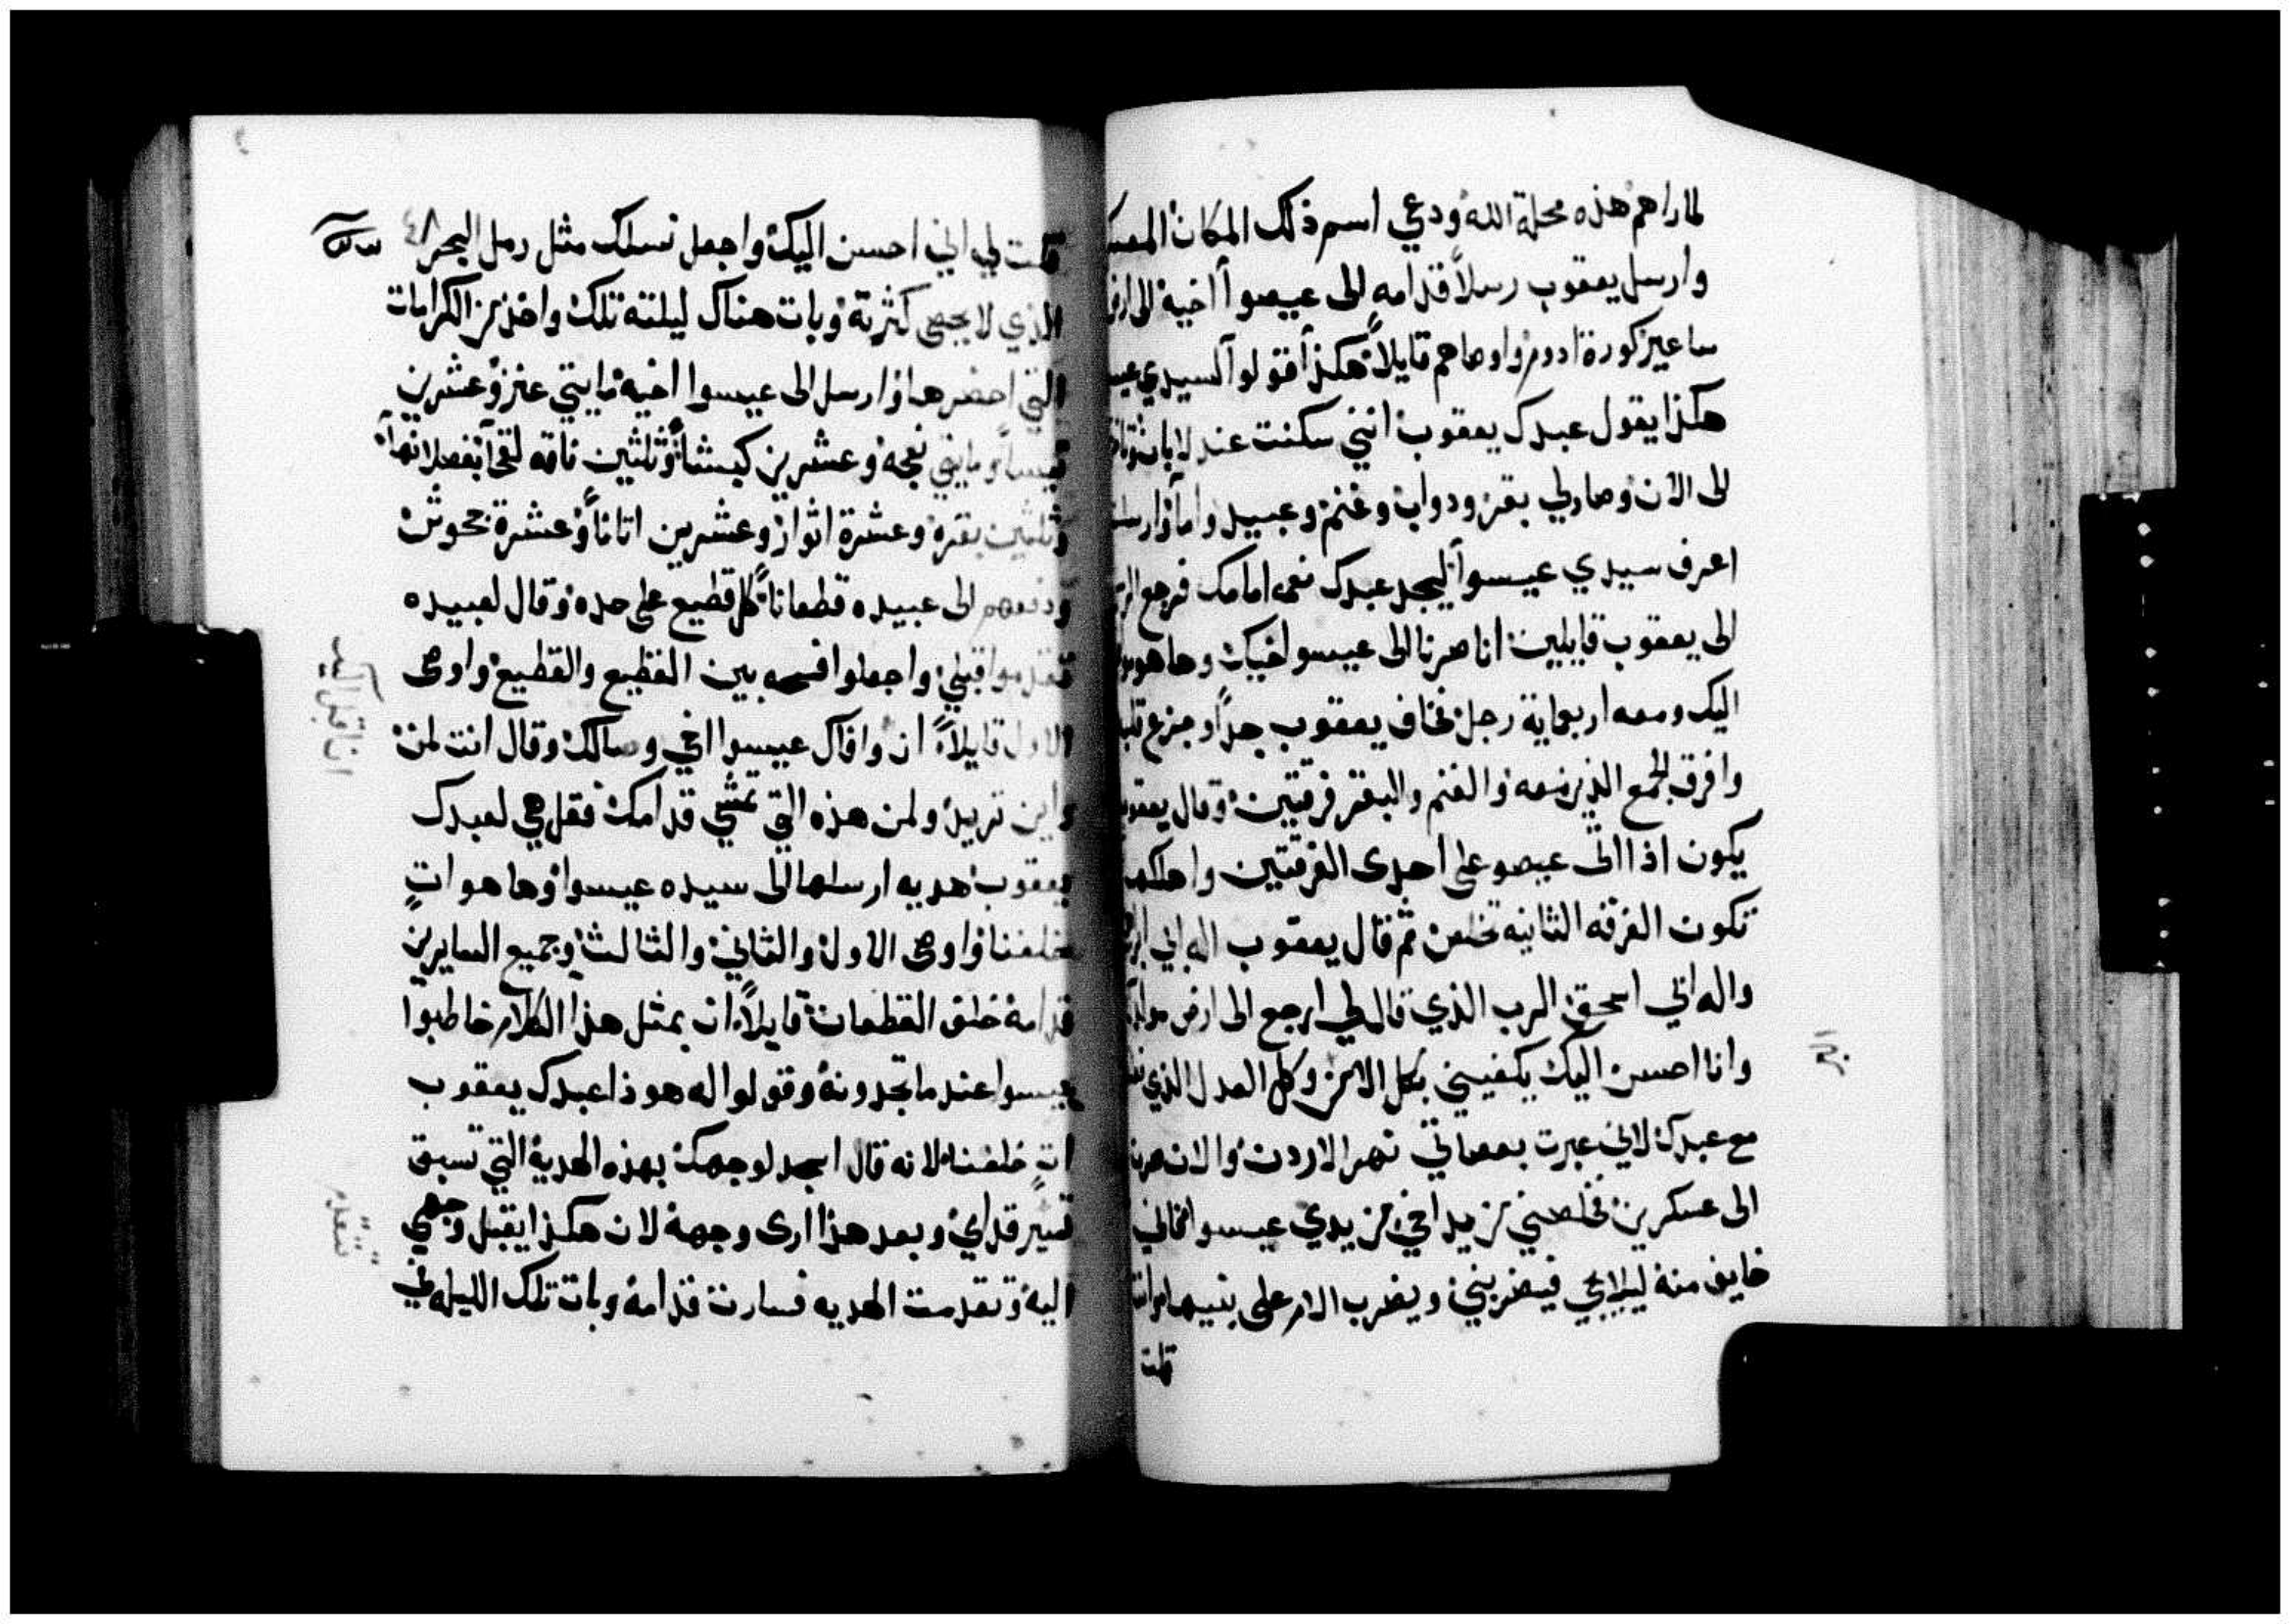 لما راهم هذه محلة الله ودعي اسم ذلك المكان
وارسل يعقوب رسلاً قدامه الى عيصوا اخيه الى
ساعير كورة ادوم واوصاهم قايلاً هكذا قولوا لسيدي
هكذا يقول عبدك يعقوب انني سكنت عند لابان
الى الان وصار لي بقر ودواب وغنم وعبيد واما وارسلت
اعرف سيدي عيسوا ليجد عبدك نعمه امامك فرجع
الى يعقوب قايلين انا صرنا الى عيسو اخيك وها هو
اليك ومعه اربعماية رجل فخاف يعقوب جداً وجزع
وافرق الجمع الذين معه والغنم والبقر فرقتين وقال يعقوب
يكون اذا اتى عيصو على احدى الفرقتين واهلكها
تكون الفرقه الثانيه تخلص ثم قال يعقوب اله ابي
واله ابي اسحق الرب الذي قال لي ارجع الى ارض
وانا احسن اليك يكفيني بكل الامر وكل العدل الذي
مع عبدك لاني عبرت بعصاتي نهر الاردن والان صرت
الى عسكرين خلصني من يد اخي من يدي عيسو فاني
خايف منه ليلا يجي فيضربني ويضرب الام على بنيها وانت
قلت
قلت لي اني احسن اليك واجعل نسلك مثل رمل البحر ٤٨
الذي لا يحصى كثرته وبات هناك ليلته تلك واخذ من الكرامات
التي احضرها وارسل الى عيسوا اخيه مايتي عنز وعشرين
تيساً ومايتي نعجه وعشرين كبشاً وثلثين ناقه لقحاً بفصلانها
وثلثين بقره وعشرة اثوار وعشرين اتاناً وعشرة جحوش
ودفعهم الى عبيده قطعاناً كل قطيع على حده وقال لعبيده
تقدموا قبلي واجعلوا فسحه بين القطيع والقطيع واوصى
الاول قايلاً ان وافاك عيسوا اخي وسالك وقال انت لمن
واين تريد ولمن هذه التي تمشي قدامك فقل هي لعبدك
يعقوب هديه ارسلها الى سيده عيسوا وها هو اتٍ
خلفنا واوصى الاول والثاني والثالث وجميع السايرين
قدامه خلف القطعان قايلاً ان بمثل هذا الكلام خاطبوا
عيسوا عندما تجدونه وقولوا له هوذا عبدك يعقوب
اتٍ خلفنا لانه قال اسجد لوجهك بهذه الهدية التي تسبق
تسير قدامي وبعد هذا ارى وجهه لان هكذا يقبل وجهي
اليه وتقدمت الهديه فسارت قدامه وبات تلك الليله في
تتقدم